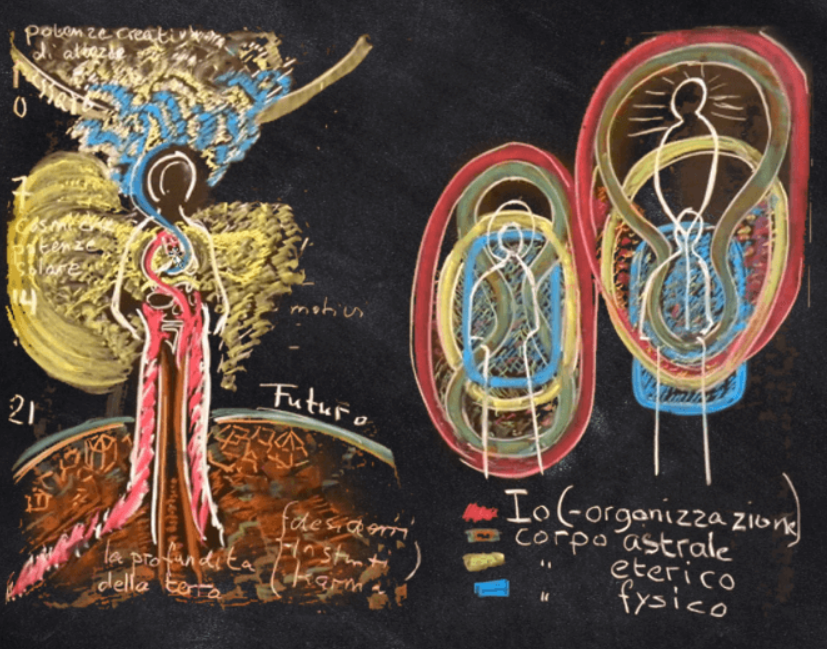 potenze creative
di altezze
0
7
cosmiche
potenze
solare
14
motivi
21
Futuro
la profundita
della terra
(desideri
instinti
karma)
Io (-organizzazione)
corpo astrale
" eterico
" fysico